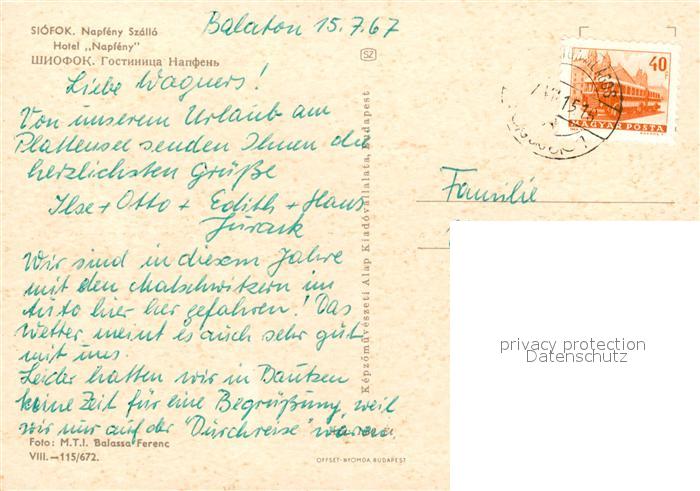 SIÓFOK. Napfény Szálló
Hotel „Napfény"
ШИОФОК. Гостиница Напфень
Balaton 15.7.67
Liebe Wagners!
Von unserem Urlaub am
Plattensee senden Ihnen die
herzlichsten Grüße
Ilse + Otto + Edith + Hans
Jurack
Wir sind in diesem Jahre
mit den Malschwitzern im
Auto hier her gefahren! Das
Wetter meint es auch sehr gut
mit uns.
Leider hatten wir in Bautzen
keine Zeit für eine Begrüßung, weil
wir nur auf der "Durchreise" waren.
Foto: M.T.I. Balassa Ferenc
VIII.—115/672.
SZ
Képzőművészeti Alap Kiadóvállalata, Budapest
OFFSET-NYOMDA BUDAPEST
40
MAGYAR POSTA
Familie
privacy protection
Datenschutz